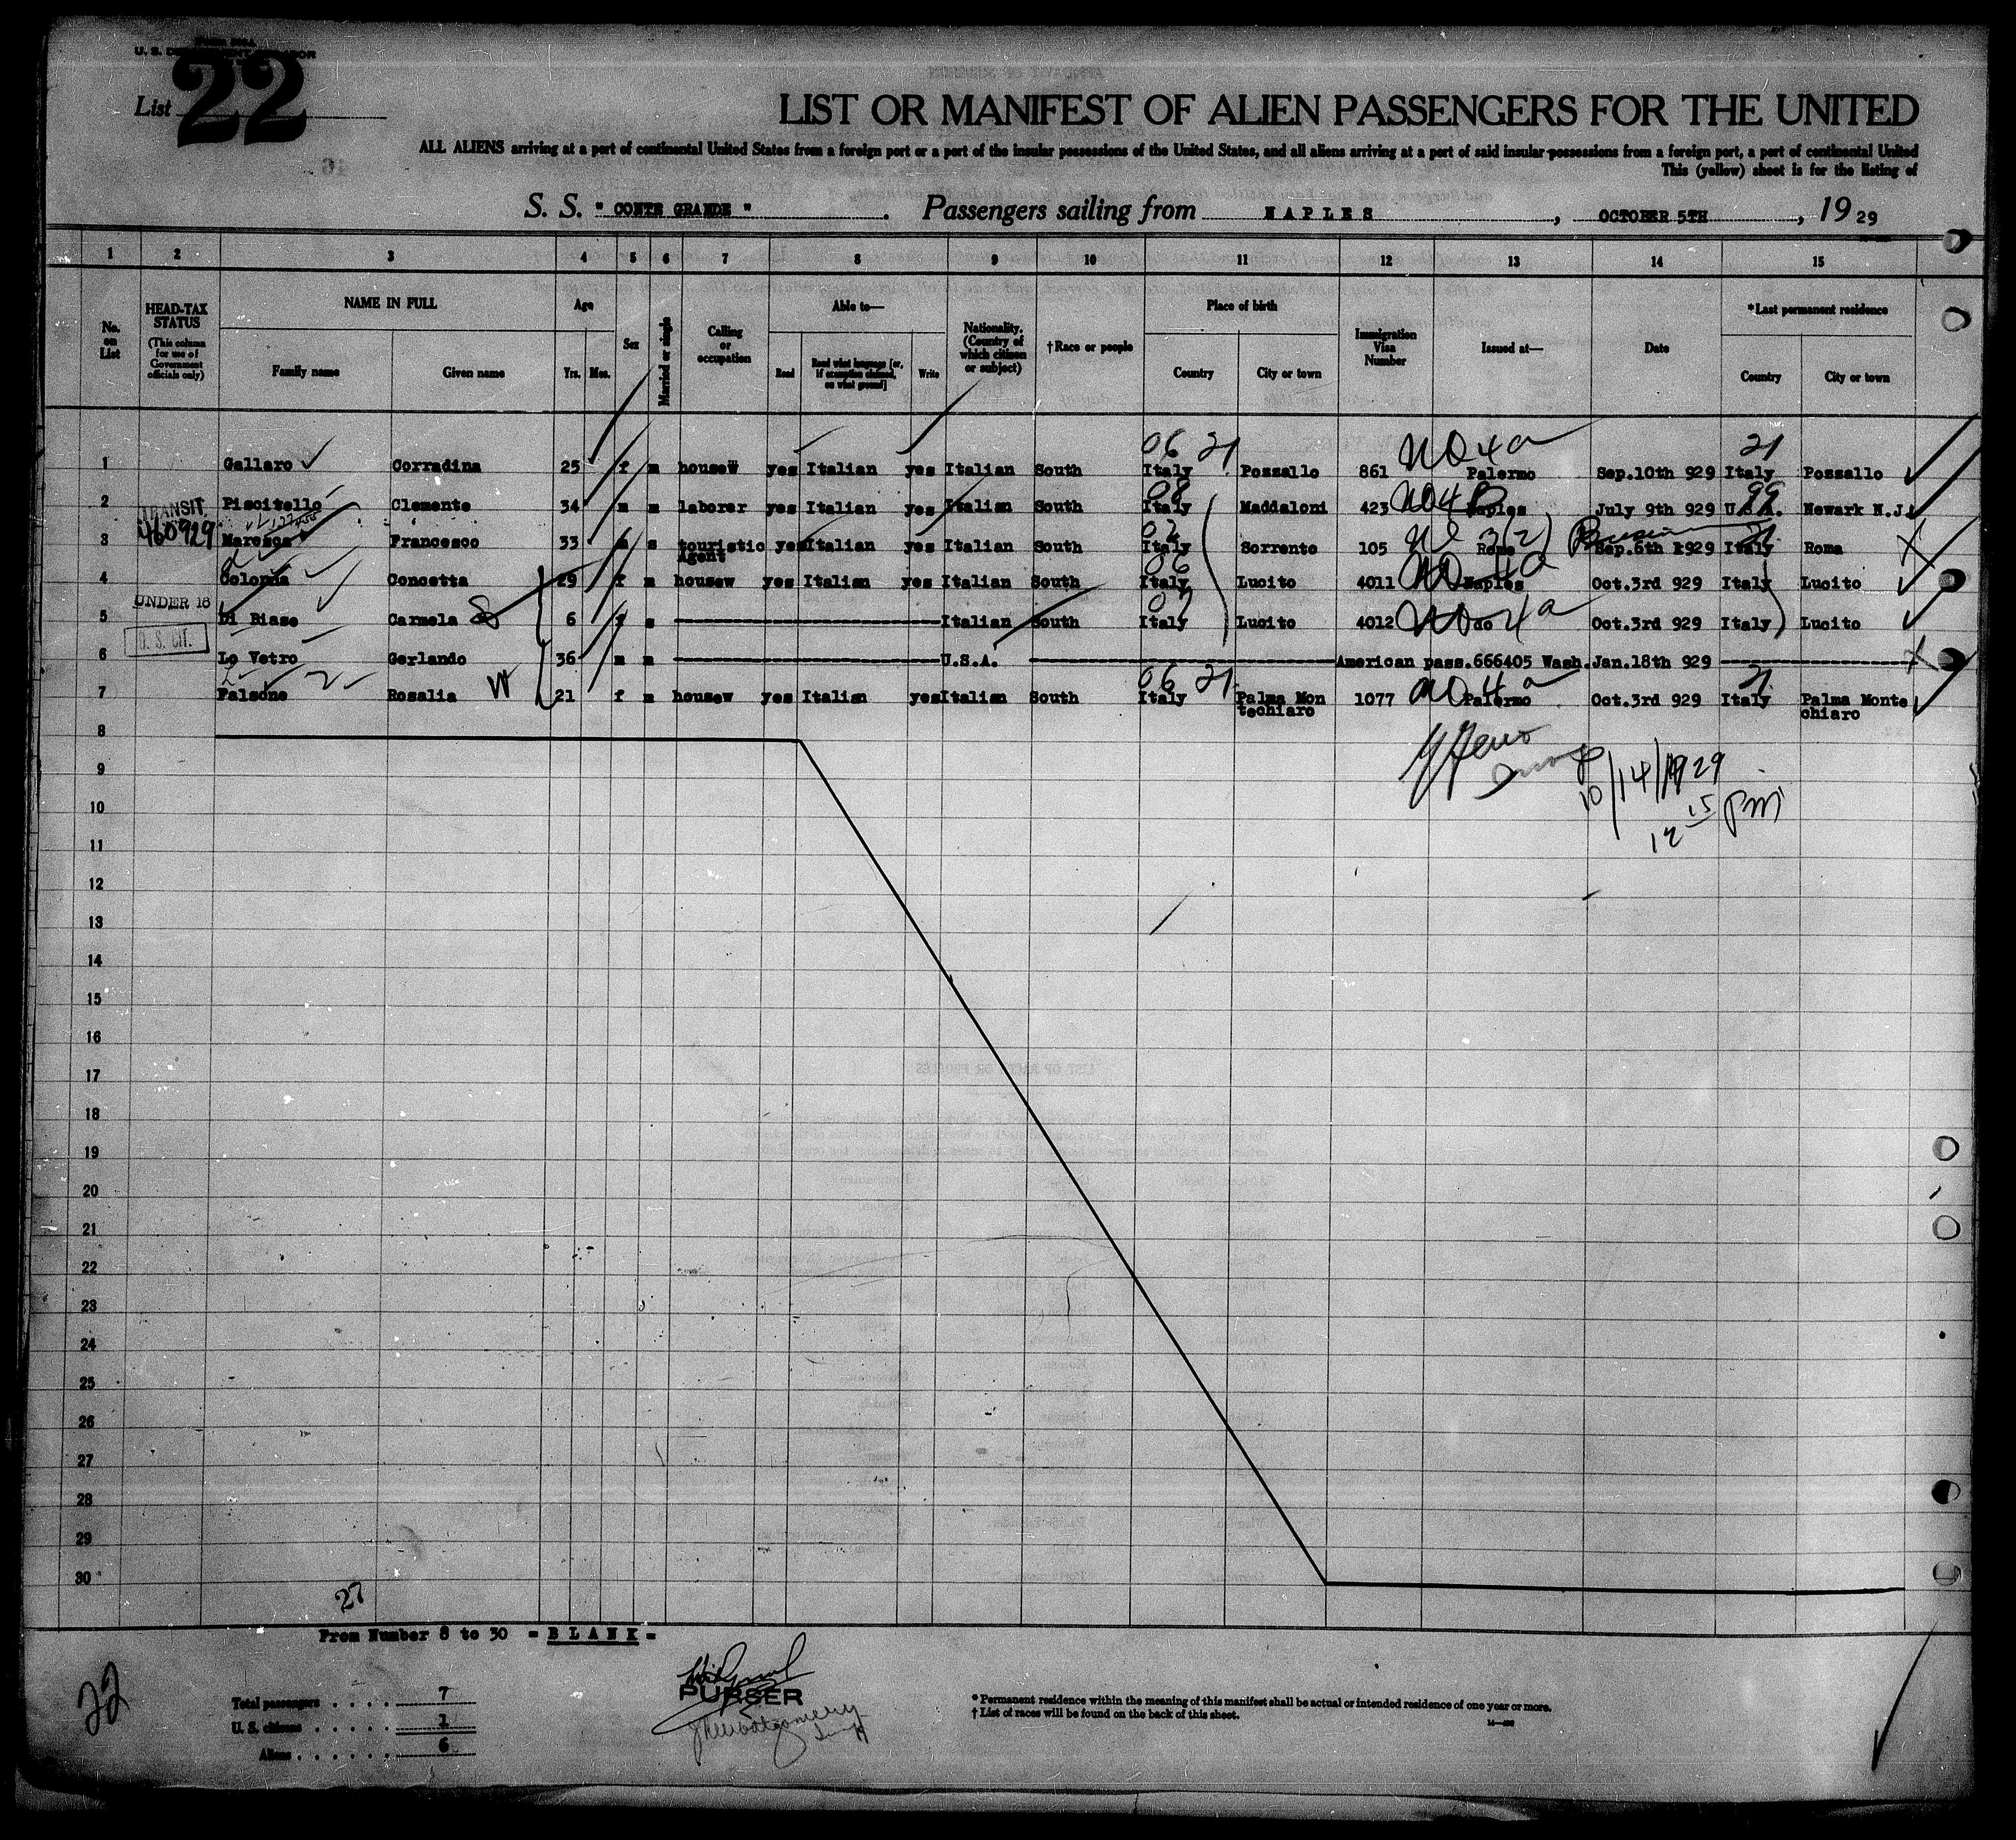 U. S. DEPARTMENT OF LABOR
List 22
LIST OR MANIFEST OF ALIEN PASSENGERS FOR THE UNITED
ALL ALIENS arriving at a port of continental United States from a foreign port or a port of the insular possessions of the United States, and all aliens arriving at a port of said insular possessions from a foreign port, a port of continental United
This (yellow) sheet is for the listing of
S. S. " CONTE GRANDE " . Passengers sailing from NAPLES , OCTOBER 5TH , 19 29
1 2 3 4 5 6 7 8 9 10 11 12 13 14 15
No. on List
HEAD-TAX STATUS (This column for use of Government officials only)
NAME IN FULL
Family name Given name
Age
Yrs. Mos.
Sex
Married or single
Calling or occupation
Able to—
Read Read what language [or, if exemption claimed, on what ground] Write
Nationality. (Country of which citizen or subject)
†Race or people
Place of birth
Country City or town
Immigration Visa Number
Issued at—
Date
*Last permanent residence
Country City or town
06 21 NQ4a 21
1 Gallaro Corradina 25 f m housew yes Italian yes Italian South Italy Pozzallo 861 Palermo Sep.10th 929 Italy Pozzallo
08 99
2 TRANSIT Piscitello Clemente 34 m m laborer yes Italian yes Italian South Italy Maddaloni 423 Naples July 9th 929 U.S.A. Newark N.J.
460929
3 Maresca Francesco 33 m s touristic Agent yes Italian yes Italian South Italy Sorrento 105 3(2) Rome Sep.6th 1929 Italy Roma
06
4 Colonna Concetta 29 f m housew yes Italian yes Italian South Italy Lucito 4011 Naples Oct.3rd 929 Italy Lucito
UNDER 16
5 Di Biase Carmela 6 f s Italian South Italy Lucito 4012 do 4a Oct.3rd 929 Italy Lucito
U. S. CIT.
6 Lo Vetro Gerlando 36 m m U.S.A. American pass.666405 Wash.Jan.18th 929
06 21 21
7 Falsone Rosalia W 21 f m housew yes Italian yes Italian South Italy Palma Mon techiaro 1077 Palermo Oct.3rd 929 Italy Palma Monte chiaro
8
9
10/14/1929
10
12 15 pm
11
12
13
14
15
16
17
18
19
20
21
22
23
24
25
26
27
28
29
30
27
From Number 8 to 30 = BLANK =
22
Total passengers . . . . 7
U. S. citizens . . . . . 1
Aliens . . . . . . 6
PURSER
* Permanent residence within the meaning of this manifest shall be actual or intended residence of one year or more.
† List of races will be found on the back of this sheet.